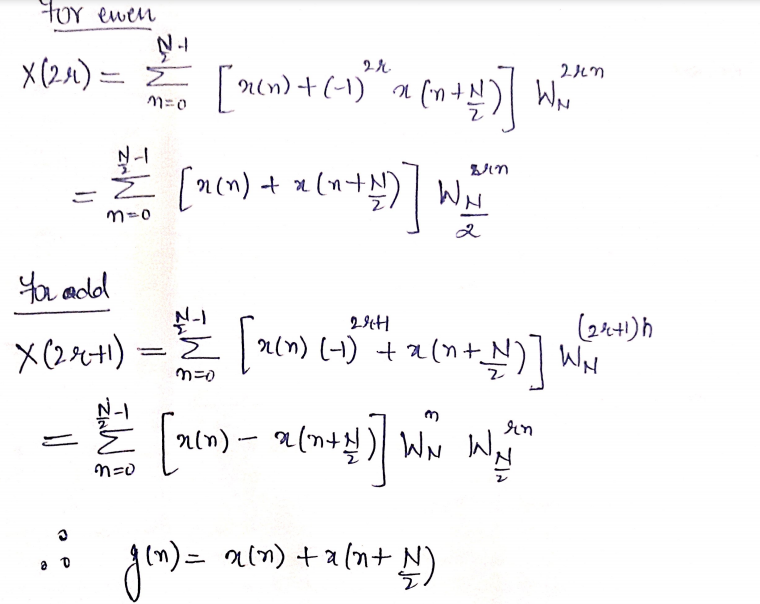 For even
X(2r) = Σ_{n=0}^{N/2-1} [x(n) + (-1)^{2r} x(n+N/2)] W_N^{2rn}
= Σ_{n=0}^{N/2-1} [x(n) + x(n+N/2)] W_{N/2}^{rn}
For odd
X(2r+1) = Σ_{n=0}^{N/2-1} [x(n) (-1)^{2r+1} + x(n+N/2)] W_N^{(2r+1)n}
= Σ_{n=0}^{N/2-1} [x(n) - x(n+N/2)] W_N^n W_{N/2}^{rn}
∴ g(n) = x(n) + x(n+N/2)